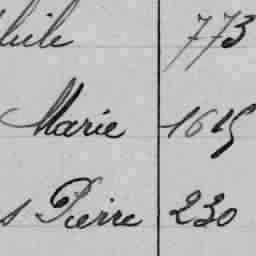 773
Marie 1615
s Pierre 230